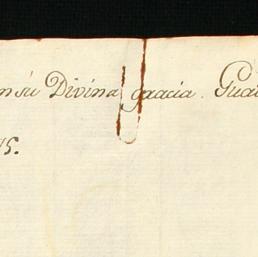 en sú Divina gracia. Guat
15.